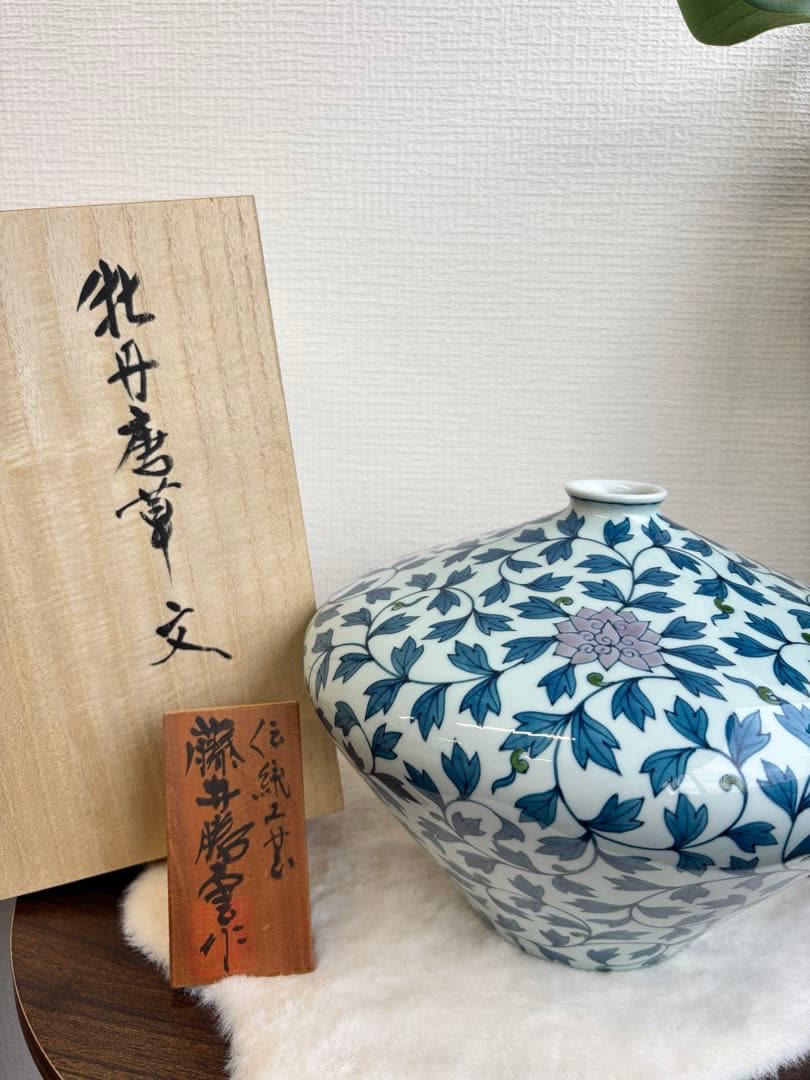 牡丹唐草
文
伝統工芸
藤井勝雲作